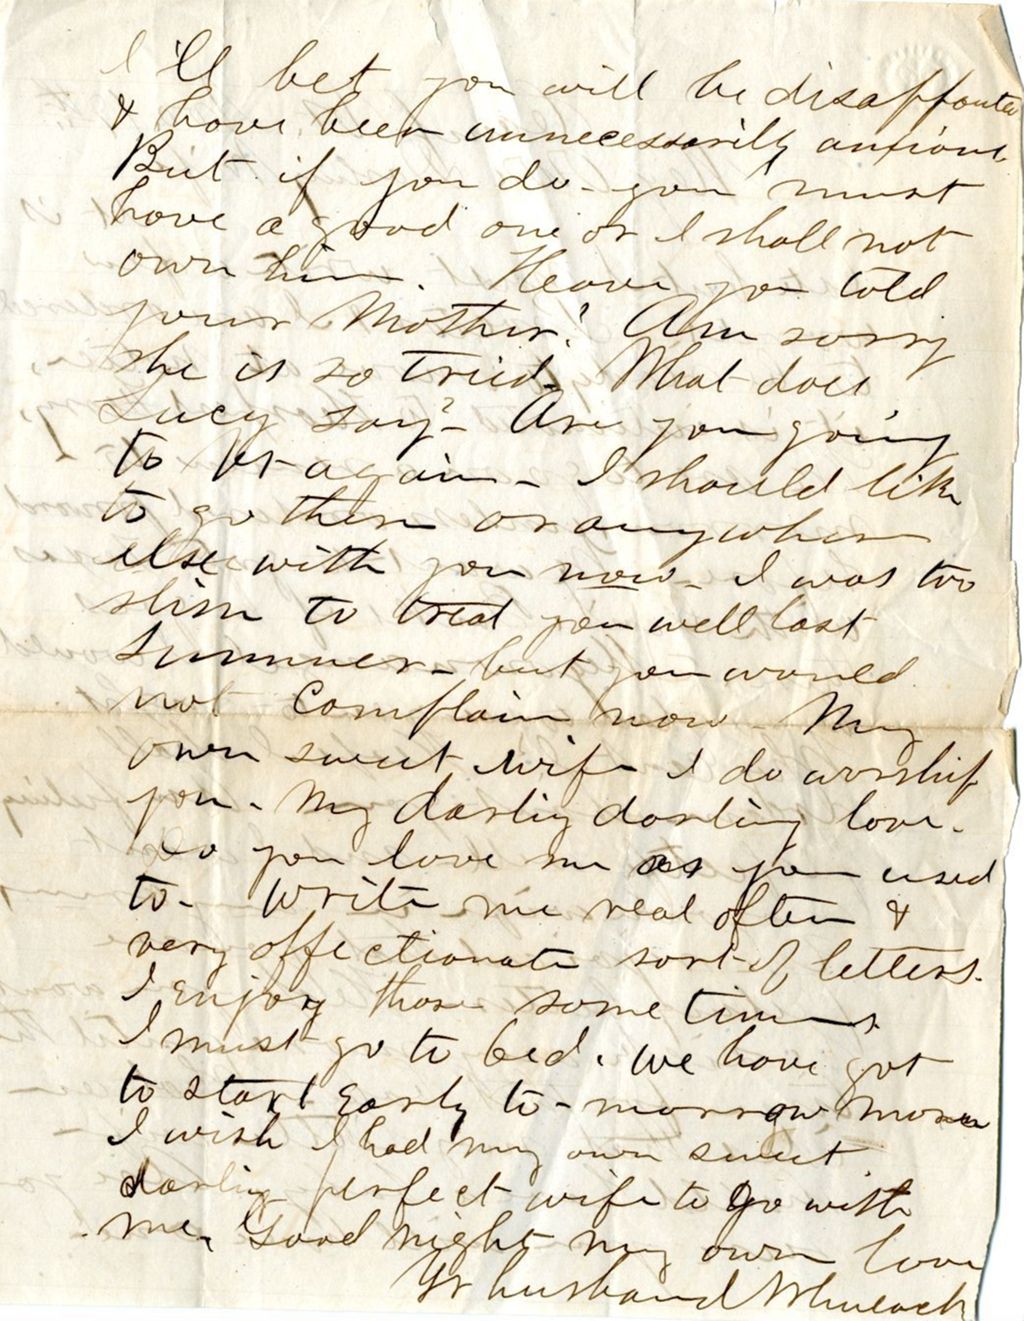 I'll bet you will be disappointed
& have been unnecessarily anxious
But if you do - you must
have a good one or I shall not
own him. Have you told
your Mother? Am sorry
she is so tried. What does
Lucy say? - Are you going
to Vt again - I should like
to go there or anywhere
else with you now - I was too
slim to treat you well last
Summer - but you would
not complain now My
own sweet wife I do worship
you - My darling darling love.
Do you love me as you used
to - Write me real often &
very affectionate sort of letters.
I enjoy those some times
I must go to bed. We have got
to start early to-morrow morn
I wish I had my own sweet
darling perfect wife to go with
me. Good night my own love
Yr husband Wheelock